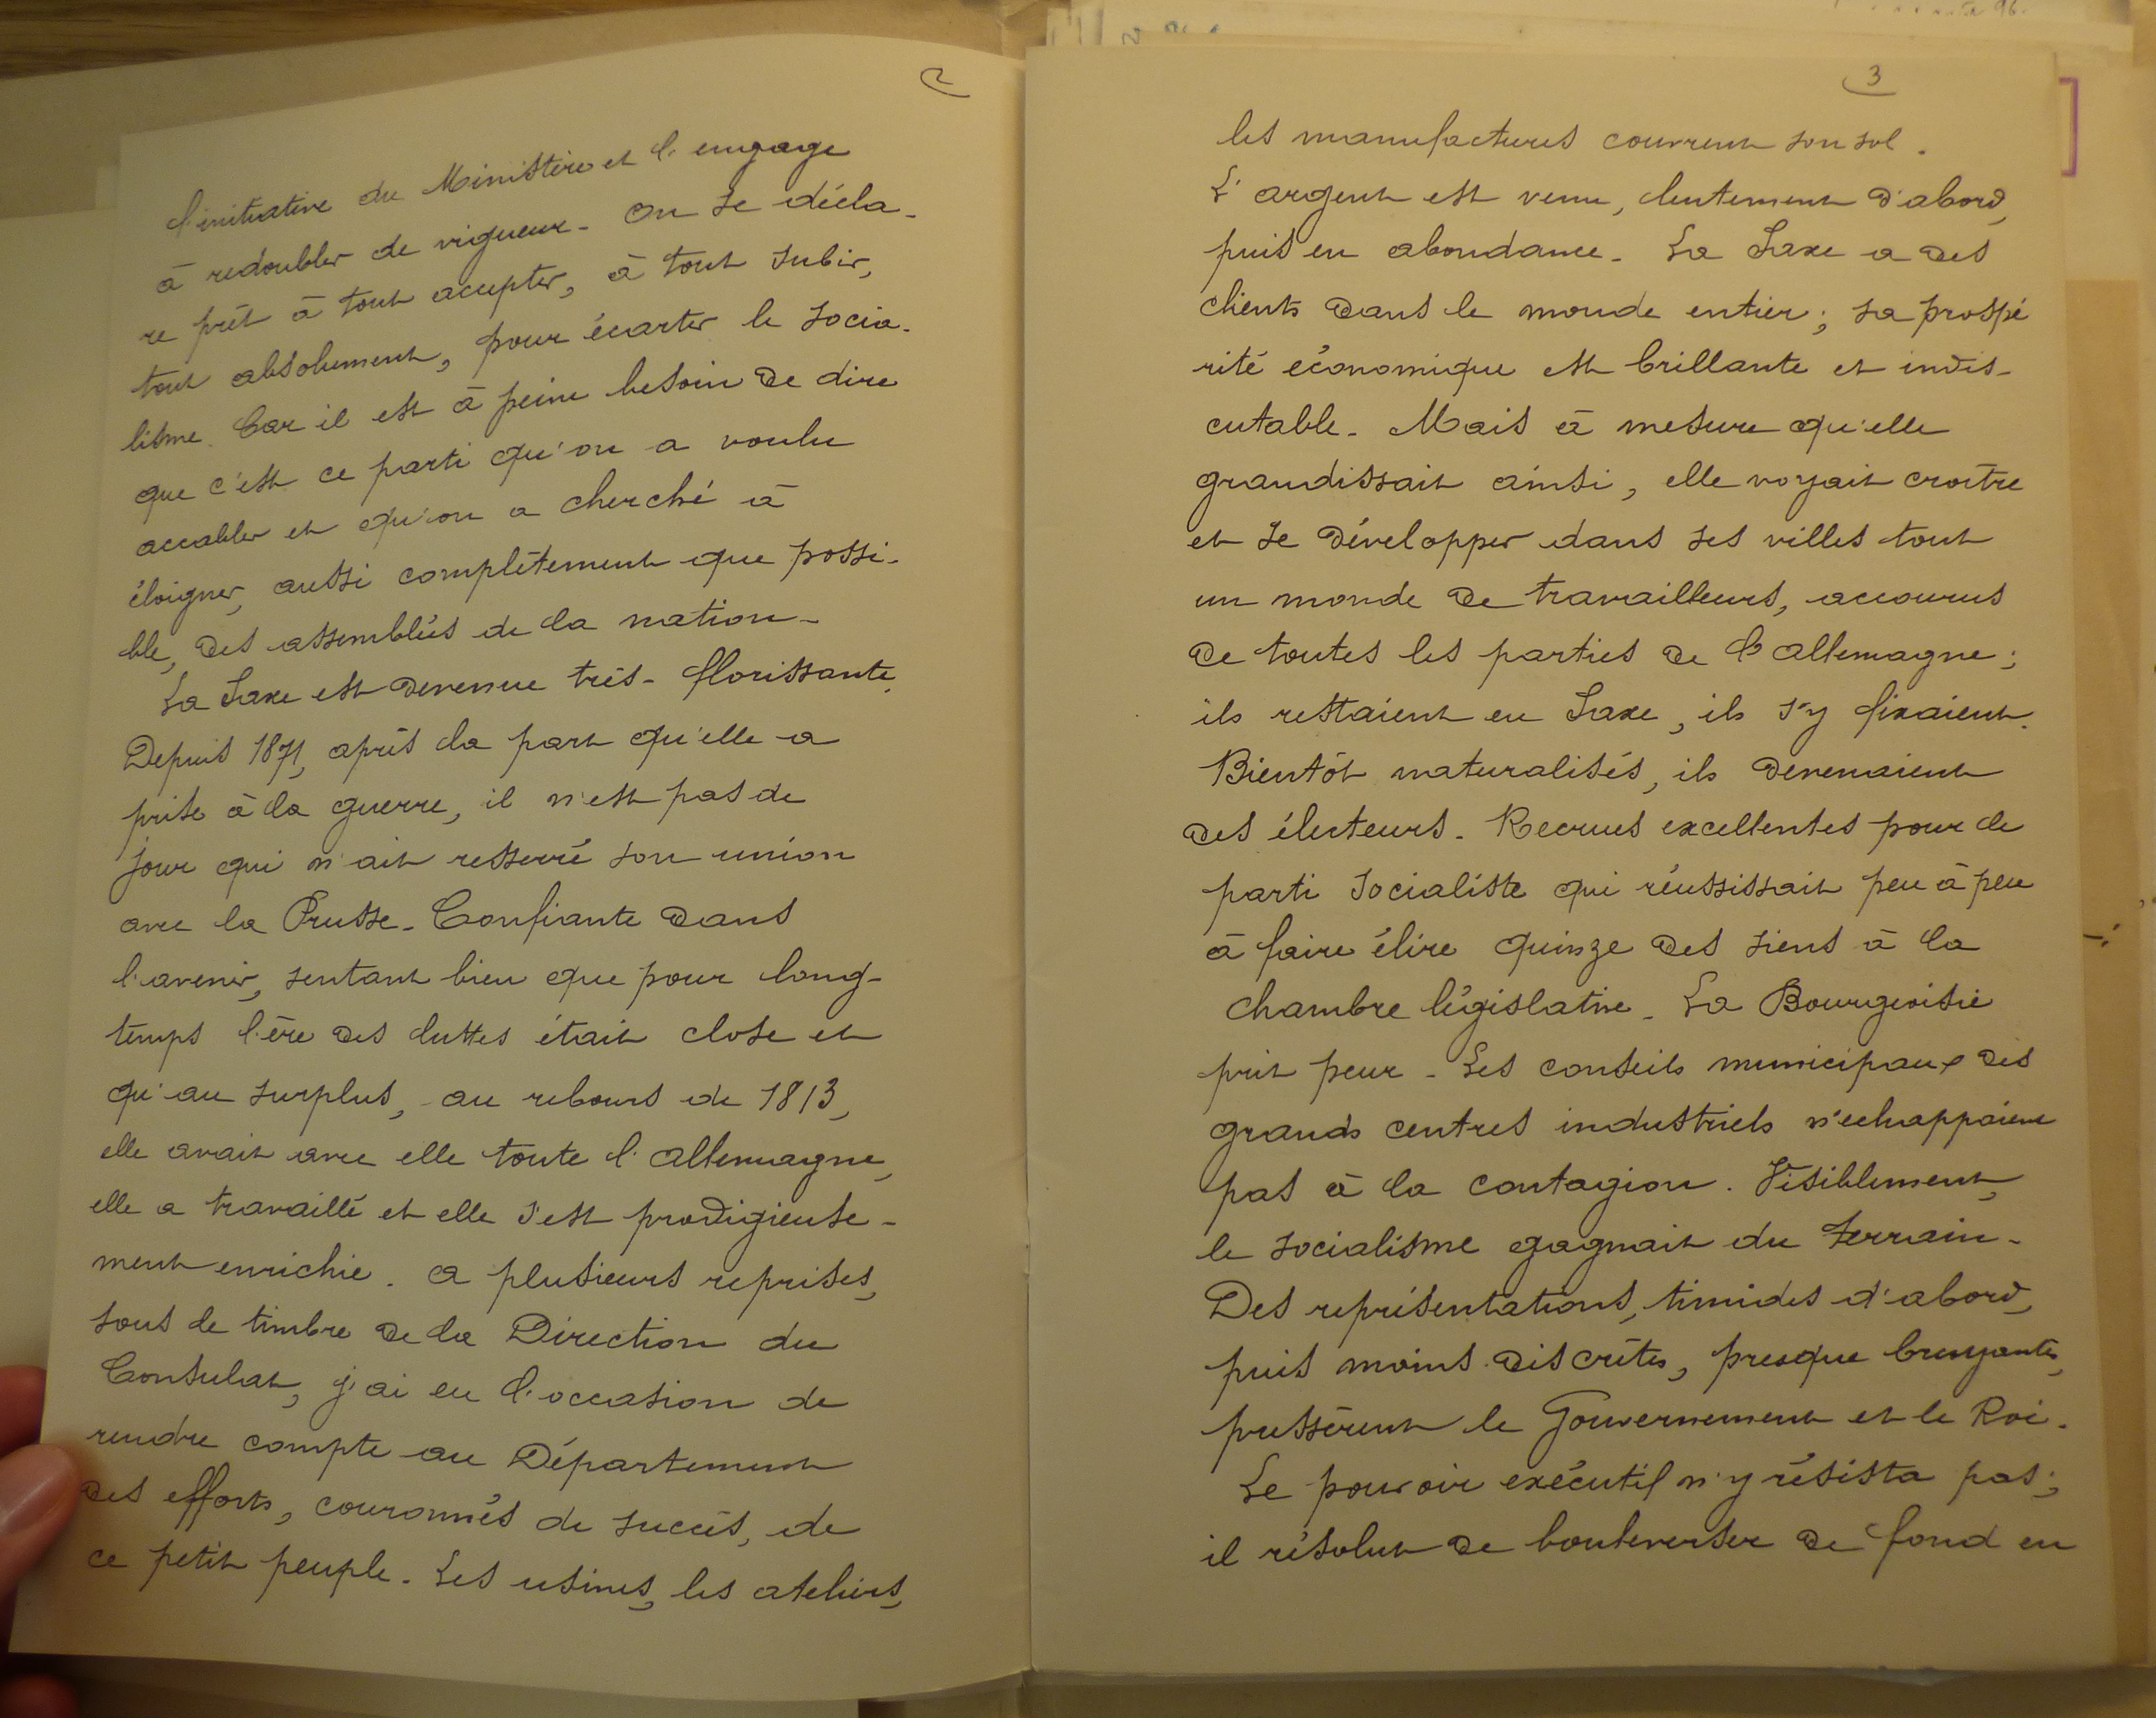 2
l'initiative du Ministère et l'engage
à redoubler de vigueur - On se décla-
re prêt à tout accepter, à tout subir,
tout absolument, pour écarter le socia-
lisme. Car il est à peine besoin de dire
que c'est ce parti qu'on a voulu
accabler et qu'on a cherché à
éloigner, aussi complètement que possi-
ble, des assemblées de la nation -
La Saxe est devenue très-florissante.
Depuis 1871, après la part qu'elle a
prise à la guerre, il n'est pas de
jour qui n'ait resserré son union
avec la Prusse - Confiante dans
l'avenir, sentant bien que pour long-
temps l'ère des luttes était close et
qu'au surplus, au rebours de 1813,
elle avait avec elle toute l'Allemagne,
elle a travaillé et elle s'est prodigieuse-
ment enrichie. A plusieurs reprises,
sous le timbre de la Direction du
Consulat, j'ai eu l'occasion de
rendre compte au Département
des efforts, couronnés de succès, de
ce petit peuple - Les usines, les ateliers,
3
les manufactures couvrent son sol.
L'argent est venu, lentement d'abord,
puis en abondance - La Saxe a des
clients dans le monde entier ; sa prospé
rité économique est brillante et indis-
cutable - Mais à mesure qu'elle
grandissait ainsi, elle voyait croître
et se développer dans ses villes tout
un monde de travailleurs, accourus
de toutes les parties de l'Allemagne ;
ils restaient en Saxe, ils s'y fixaient.
Bientôt naturalisés, ils devenaient
des électeurs - Recrues excellentes pour le
parti socialiste qui réussissait peu à peu
à faire élire quinze des siens à la
chambre législative - La Bourgeoisie
prit peur - Les conseils municipaux des
grands centres industriels n'échappaient
pas à la contagion. Visiblement,
le socialisme gagnait du terrain -
Des représentations, timides d'abord,
puis moins discrètes, presque bruyantes,
pressèrent le Gouvernement et le Roi.
Le pouvoir exécutif n'y résista pas ;
il résolut de bouleverser de fond en